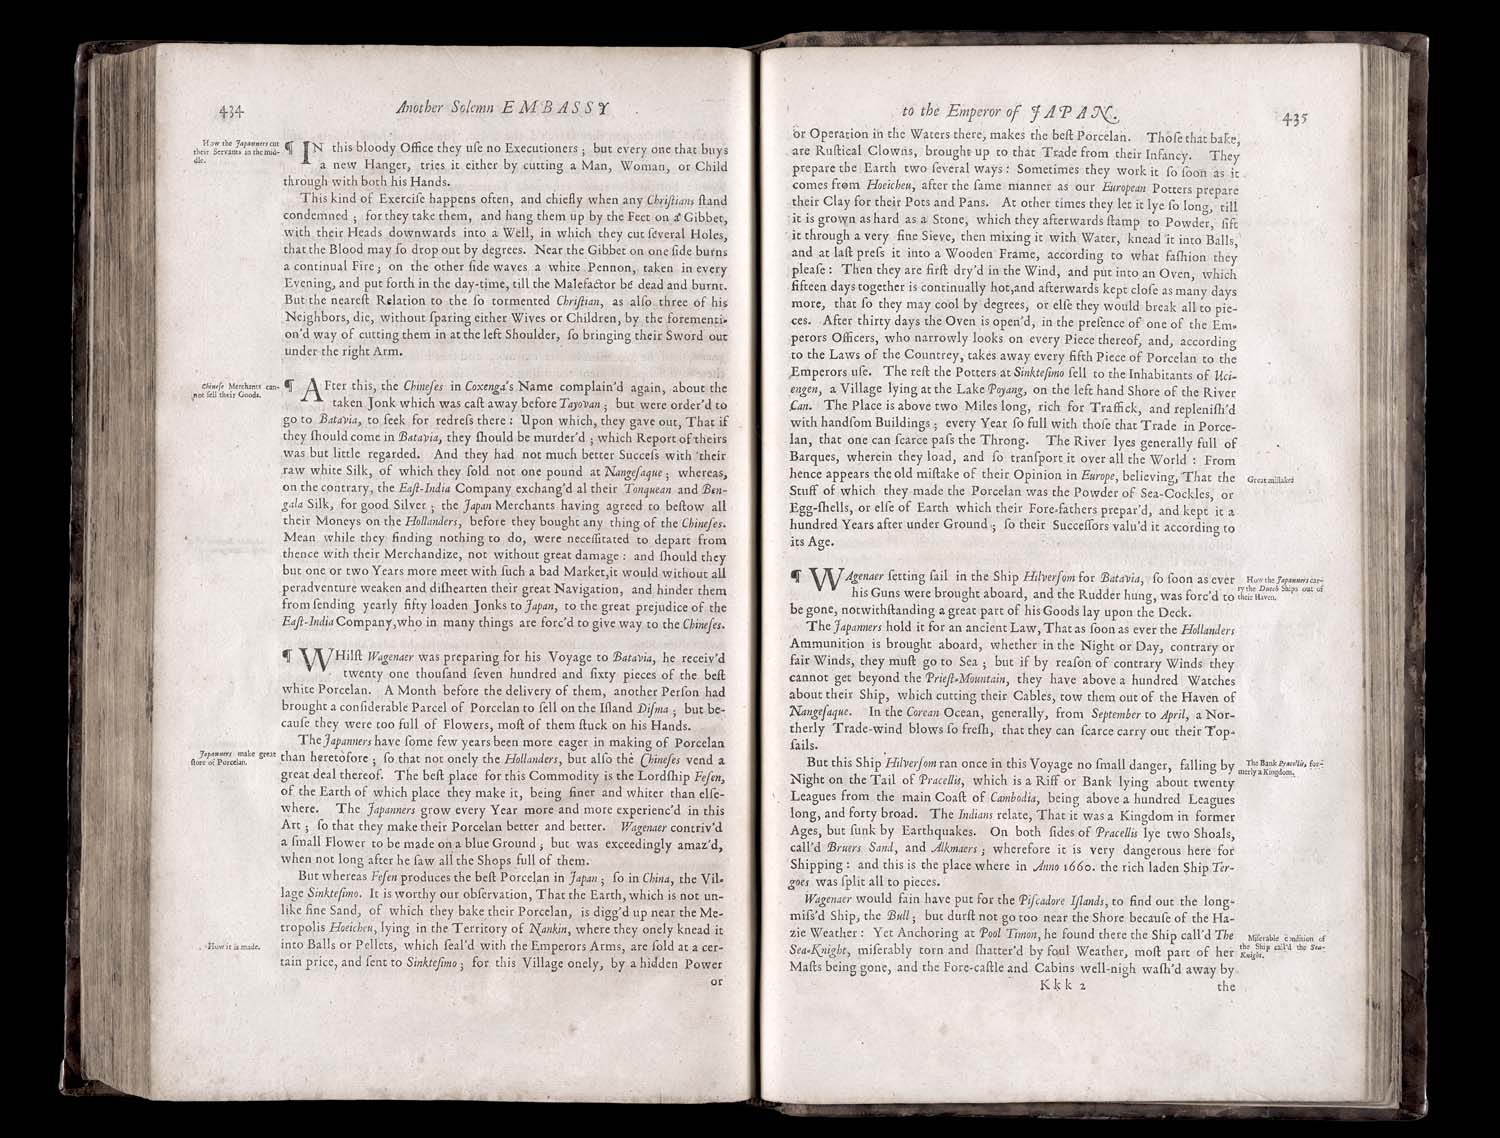 434
Another Solemn EMBASSY
How the Japanners cut
their Servants in the mid-
dle.
¶ IN this bloody Office they uſe no Executioners ; but every one that buys
a new Hanger, tries it either by cutting a Man, Woman, or Child
through with both his Hands.
This kind of Exerciſe happens often, and chiefly when any Chriſtians ſtand
condemned ; for they take them, and hang them up by the Feet on a Gibbet,
with their Heads downwards into a Well, in which they cut ſeveral Holes,
that the Blood may ſo drop out by degrees. Near the Gibbet on one ſide burns
a continual Fire ; on the other ſide waves a white Pennon, taken in every
Evening, and put forth in the day-time, till the Malefactor be dead and burnt.
But the neareſt Relation to the ſo tormented Chriſtian, as alſo three of his
Neighbors, die, without ſparing either Wives or Children, by the forementi-
on'd way of cutting them in at the left Shoulder, ſo bringing their Sword out
under the right Arm.
Chineſe Merchants can-
not ſell their Goods.
¶ AFter this, the Chineſes in Coxenga's Name complain'd again, about the
taken Jonk which was caſt away before Tayovan ; but were order'd to
go to Batavia, to ſeek for redreſs there : Upon which, they gave out, That if
they ſhould come in Batavia, they ſhould be murder'd ; which Report of theirs
was but little regarded. And they had not much better Succeſs with their
raw white Silk, of which they ſold not one pound at Nangeſaque ; whereas,
on the contrary, the Eaſt-India Company exchang'd al their Tonquean and Ben-
gala Silk, for good Silver ; the Japan Merchants having agreed to beſtow all
their Moneys on the Hollanders, before they bought any thing of the Chineſes.
Mean while they finding nothing to do, were neceſſitated to depart from
thence with their Merchandize, not without great damage : and ſhould they
but one or two Years more meet with ſuch a bad Market,it would without all
peradventure weaken and diſhearten their great Navigation, and hinder them
from ſending yearly fifty loaden Jonks to Japan, to the great prejudice of the
Eaſt-India Company,who in many things are forc'd to give way to the Chineſes.
¶ WHilſt Wagenaer was preparing for his Voyage to Batavia, he receiv'd
twenty one thouſand ſeven hundred and ſixty pieces of the beſt
white Porcelan. A Month before the delivery of them, another Perſon had
brought a conſiderable Parcel of Porcelan to ſell on the Iſland Diſma ; but be-
cauſe they were too full of Flowers, moſt of them ſtuck on his Hands.
Japanners make great
ſtore of Porcelan.
The Japanners have ſome few years been more eager in making of Porcelan
than heretofore ; ſo that not onely the Hollanders, but alſo the Chineſes vend a
great deal thereof. The beſt place for this Commodity is the Lordſhip Feſen,
of the Earth of which place they make it, being finer and whiter than elſe-
where. The Japanners grow every Year more and more experienc'd in this
Art ; ſo that they make their Porcelan better and better. Wagenaer contriv'd
a ſmall Flower to be made on a blue Ground ; but was exceedingly amaz'd,
when not long after he ſaw all the Shops full of them.
But whereas Feſen produces the beſt Porcelan in Japan ; ſo in China, the Vil-
lage Sinkteſimo. It is worthy our obſervation, That the Earth, which is not un-
like fine Sand, of which they bake their Porcelan, is digg'd up near the Me-
tropolis Hoeicheu, lying in the Territory of Nankin, where they onely knead it
How it is made.
into Balls or Pellets, which ſeal'd with the Emperors Arms, are ſold at a cer-
tain price, and ſent to Sinkteſimo ; for this Village onely, by a hidden Power
or
to the Emperor of JAPAN.
435
or Operation in the Waters there, makes the beſt Porcelan. Thoſe that bake,
are Ruſtical Clowns, brought up to that Trade from their Infancy. They
prepare the Earth two ſeveral ways : Sometimes they work it ſo ſoon as it
comes from Hoeicheu, after the ſame manner as our European Potters prepare
their Clay for their Pots and Pans. At other times they let it lye ſo long, till
it is grown as hard as a Stone, which they afterwards ſtamp to Powder, ſift
it through a very fine Sieve, then mixing it with Water, knead it into Balls,
and at laſt preſs it into a Wooden Frame, according to what faſhion they
pleaſe : Then they are firſt dry'd in the Wind, and put into an Oven, which
fifteen days together is continually hot,and afterwards kept cloſe as many days
more, that ſo they may cool by degrees, or elſe they would break all to pie-
ces. After thirty days the Oven is open'd, in the preſence of one of the Em-
perors Officers, who narrowly looks on every Piece thereof, and, according
to the Laws of the Countrey, takes away every fifth Piece of Porcelan to the
Emperors uſe. The reſt the Potters at Sinkteſimo ſell to the Inhabitants of Uci-
engen, a Village lying at the Lake Poyang, on the left hand Shore of the River
Can. The Place is above two Miles long, rich for Traffick, and repleniſh'd
with handſom Buildings ; every Year ſo full with thoſe that Trade in Porce-
lan, that one can ſcarce paſs the Throng. The River lyes generally full of
Barques, wherein they load, and ſo tranſport it over all the World : From
hence appears the old miſtake of their Opinion in Europe, believing, That the
Great miſtakes
Stuff of which they made the Porcelan was the Powder of Sea-Cockles, or
Egg-ſhells, or elſe of Earth which their Fore-fathers prepar'd, and kept it a
hundred Years after under Ground ; ſo their Succeſſors valu'd it according to
its Age.
¶ WAgenaer ſetting ſail in the Ship Hilverſom for Batavia, ſo ſoon as ever
his Guns were brought aboard, and the Rudder hung, was forc'd to
be gone, notwithſtanding a great part of his Goods lay upon the Deck.
How the Japanners car-
ry the Dutch Ships out of
their Haven.
The Japanners hold it for an ancient Law, That as ſoon as ever the Hollanders
Ammunition is brought aboard, whether in the Night or Day, contrary or
fair Winds, they muſt go to Sea ; but if by reaſon of contrary Winds they
cannot get beyond the Prieſt-Mountain, they have above a hundred Watches
about their Ship, which cutting their Cables, tow them out of the Haven of
Nangeſaque. In the Corean Ocean, generally, from September to April, a Nor-
therly Trade-wind blows ſo freſh, that they can ſcarce carry out their Top-
ſails.
But this Ship Hilverſom ran once in this Voyage no ſmall danger, falling by
The Bank Pracellis, for-
merly a Kingdom.
Night on the Tail of Pracellis, which is a Riff or Bank lying about twenty
Leagues from the main Coaſt of Cambodia, being above a hundred Leagues
long, and forty broad. The Indians relate, That it was a Kingdom in former
Ages, but ſunk by Earthquakes. On both ſides of Pracellis lye two Shoals,
call'd Bruers Sand, and Alkmaers ; wherefore it is very dangerous here for
Shipping : and this is the place where in Anno 1660. the rich laden Ship Ter-
goes was ſplit all to pieces.
Wagenaer would fain have put for the Piſcadore Iſlands, to find out the long-
miſs'd Ship, the Bull ; but durſt not go too near the Shore becauſe of the Ha-
zie Weather : Yet Anchoring at Pool Timon, he found there the Ship call'd The
Sea-Knight, miſerably torn and ſhatter'd by foul Weather, moſt part of her
Maſts being gone, and the Fore-caſtle and Cabins well-nigh waſh'd away by
Miſerable condition of
the Ship call'd the Sea-
Knight.
Kkk 2
the